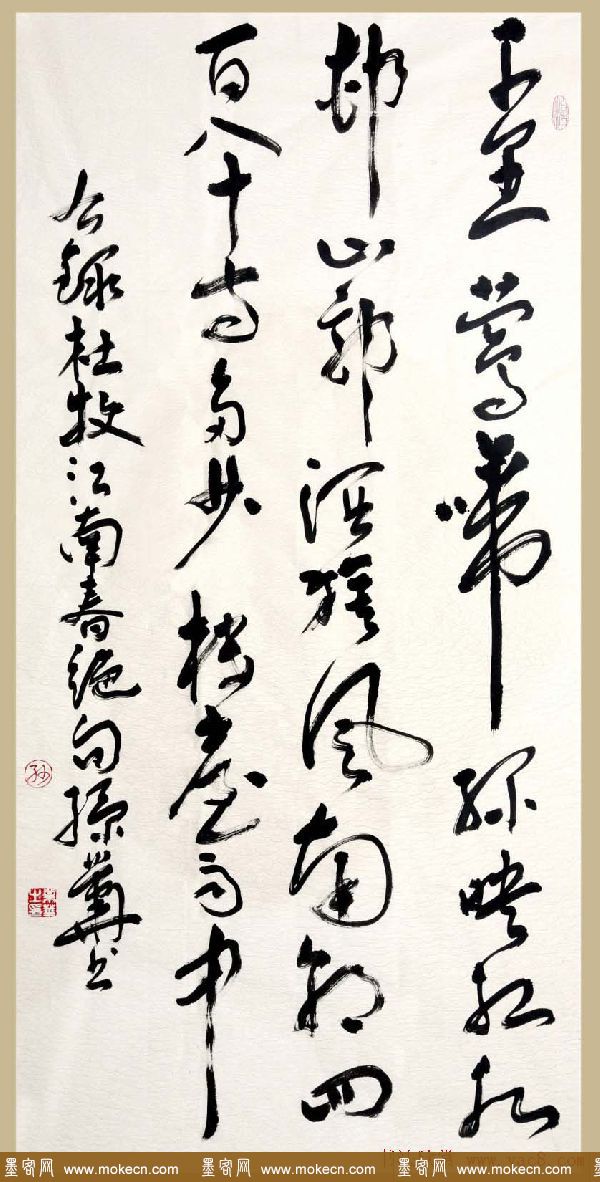 千里莺啼绿映红水
村山郭酒旗风南朝四
百八十寺多少楼臺雨中
今録杜牧江南春绝句孫華书
墨客网 www.mokecn.com 墨客网 www.mokecn.com 墨客网 www.mokecn.com
www.yac8.com